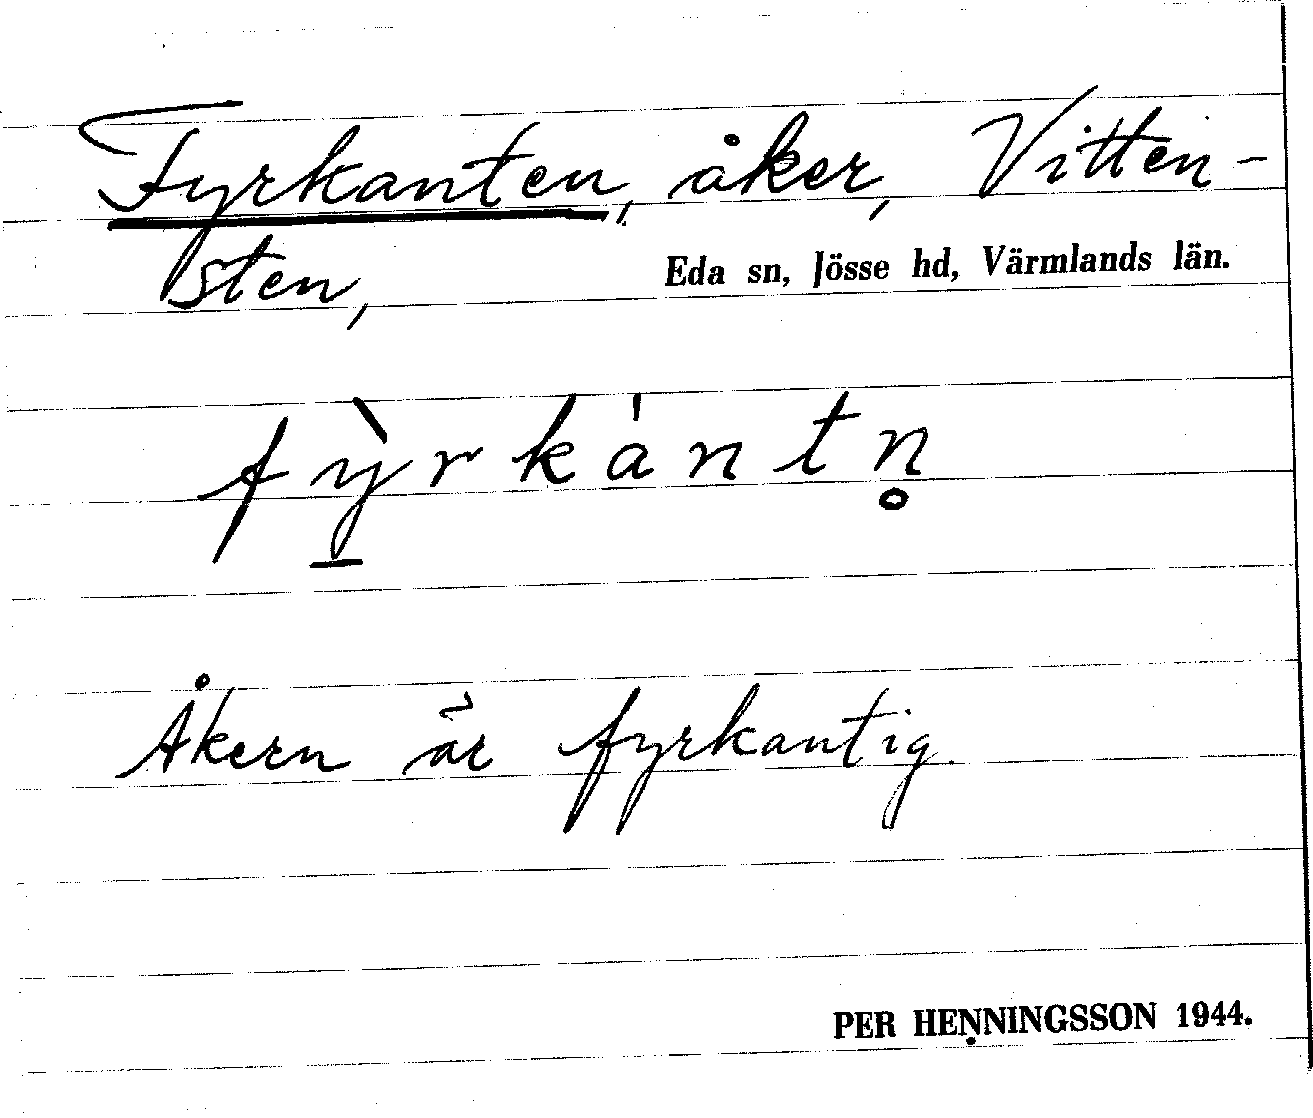 Fyrkanten, åker, Vitten-
sten,
Eda sn, Jösse hd, Värmlands län.
fỳ̱rkȧ̀ntn̥
Åkern är fyrkantig.
PER HENNINGSSON 1944.